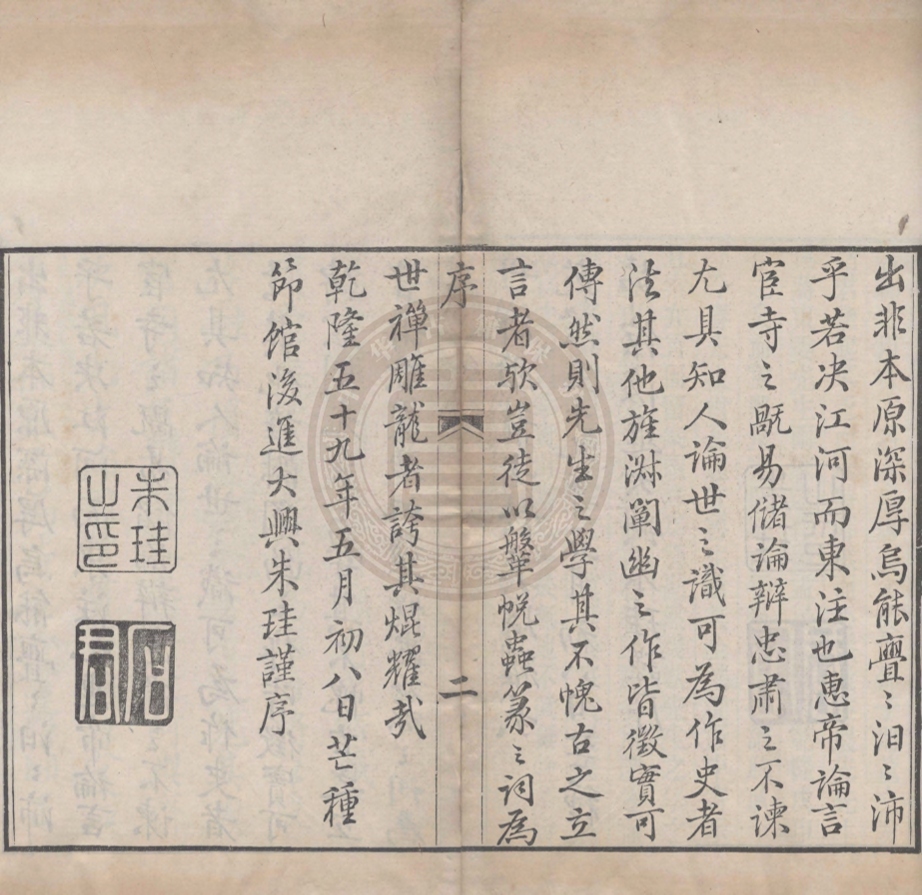 出非本原深厚烏能亹〻汩〻沛
乎若决江河而東注也惠帝論言
宦寺之
易儲論辯忠肅之不諫
尤具知人論世之識可為作史者
法其他旌淑闡幽之作皆徵實可
傳然則先生之學其不愧古之立
言者欤豈徒以鞶帨蟲篆之詞為
序
二
世禪雕龍者誇其焜耀㢤
乾隆五十九年五月初八日芒種
節館後進大興朱珪謹序
朱珪之印
石君